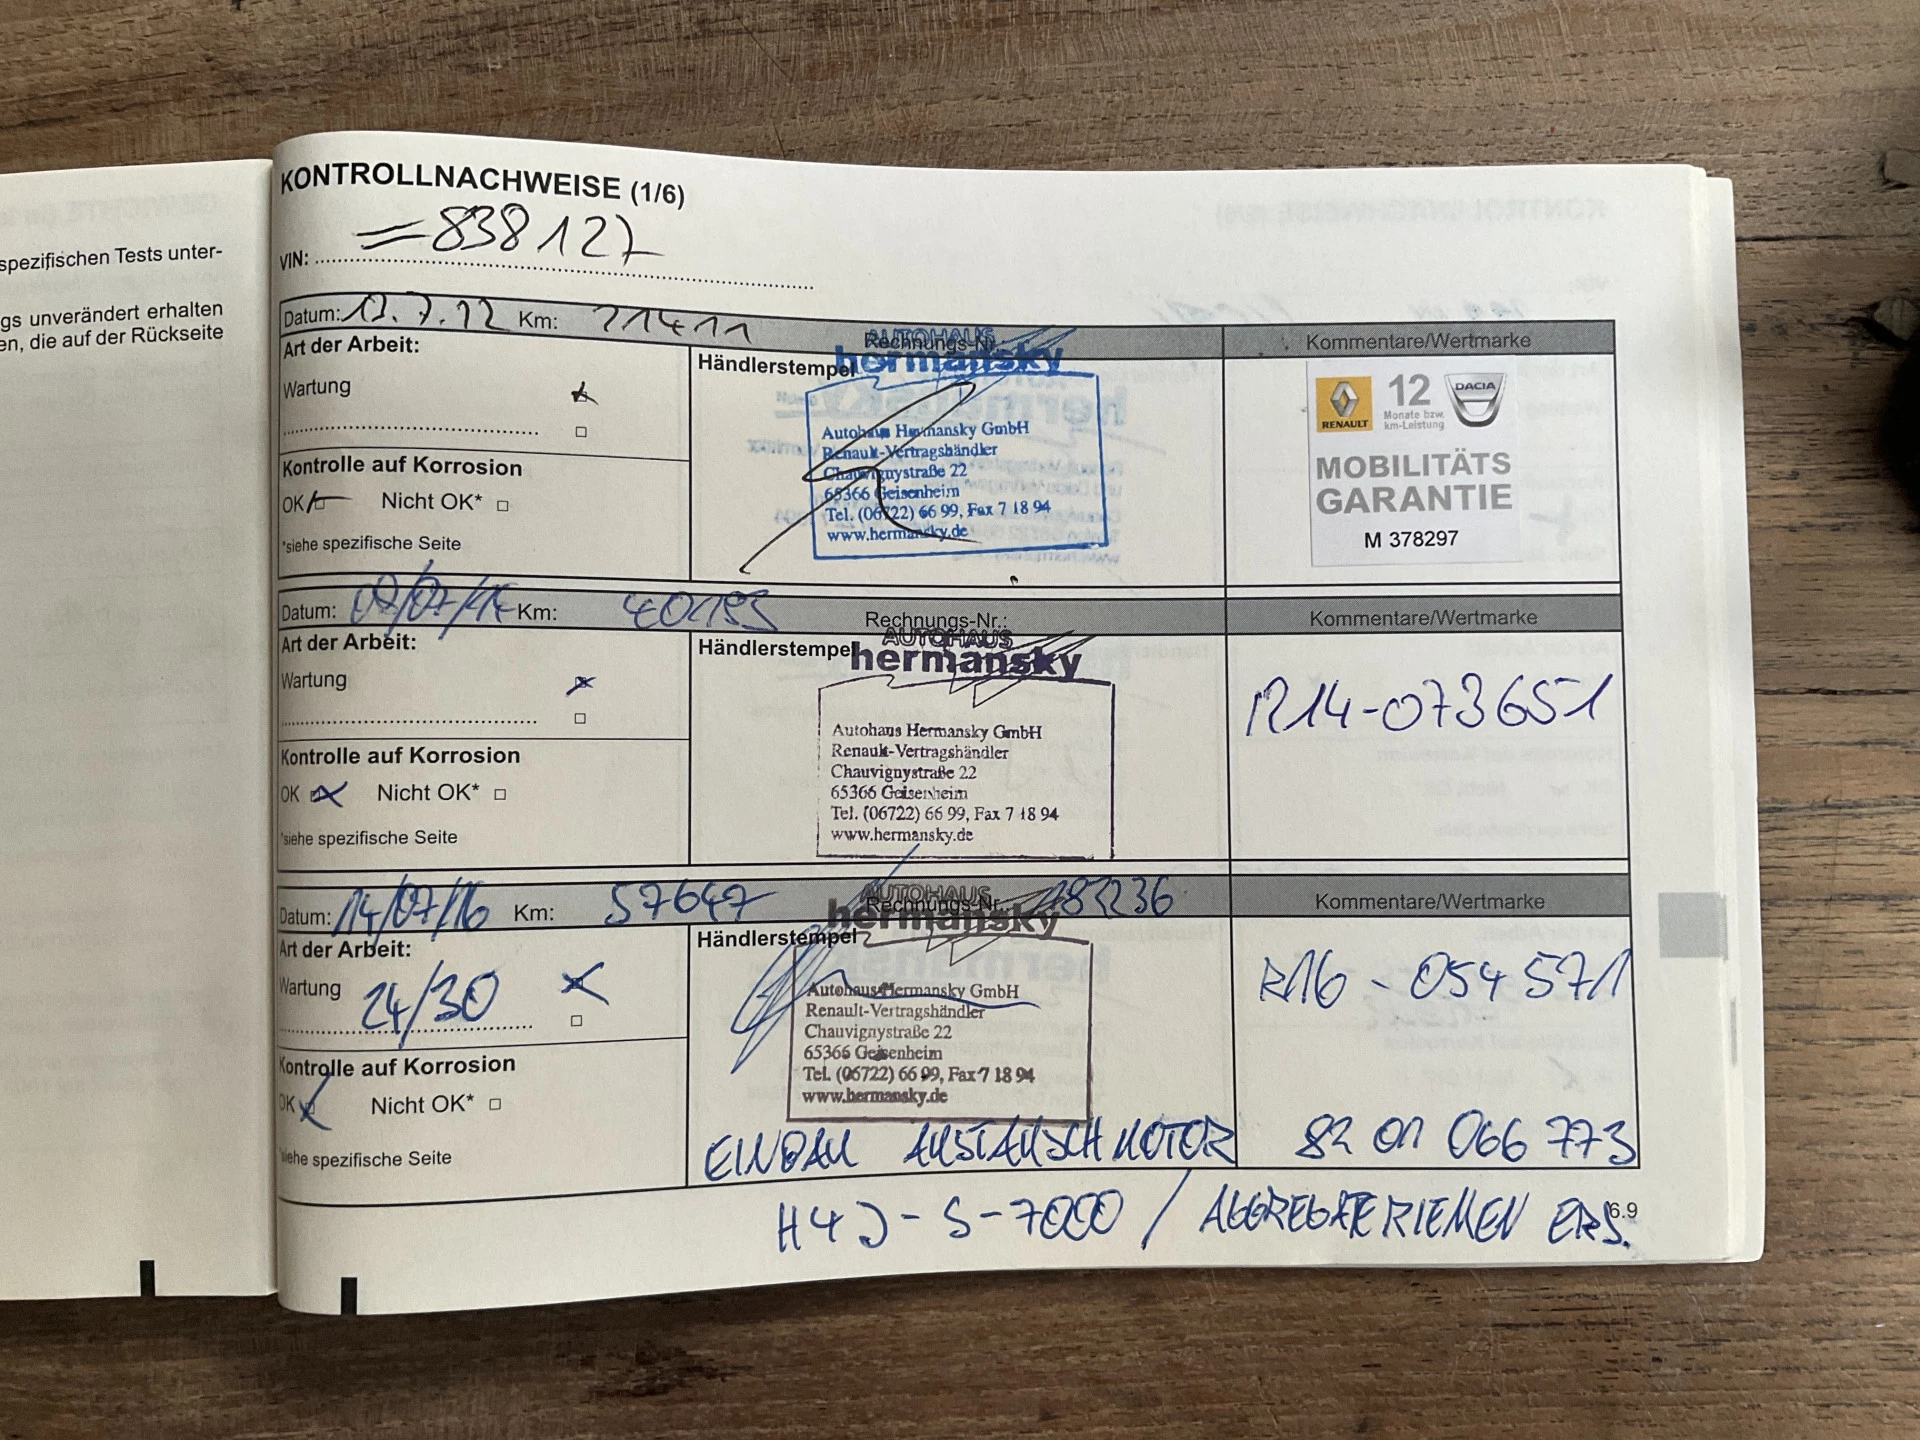 spezifischen Tests unter-
gs unverändert erhalten
en, die auf der Rückseite
KONTROLLNACHWEISE (1/6)
VIN: =838127
Datum: 12.7.12 Km: 21411 Rechnungs-Nr. Kommentare/Wertmarke
Art der Arbeit:
Wartung
Kontrolle auf Korrosion
OK Nicht OK*
*siehe spezifische Seite
Händlerstempel
AUTOHAUS
hermansky
Autohaus Hermansky GmbH
Renault-Vertragshändler
Chauvignystraße 22
65366 Geisenheim
Tel. (06722) 66 99, Fax 7 18 94
www.hermansky.de
RENAULT
12
Monate bzw.
km-Leistung
DACIA
MOBILITÄTS
GARANTIE
M 378297
Datum: Km: 40193 Rechnungs-Nr.: Kommentare/Wertmarke
Art der Arbeit:
Wartung
Kontrolle auf Korrosion
OK Nicht OK*
*siehe spezifische Seite
Händlerstempel
AUTOHAUS
hermansky
Autohaus Hermansky GmbH
Renault-Vertragshändler
Chauvignystraße 22
65366 Geisenheim
Tel. (06722) 66 99, Fax 7 18 94
www.hermansky.de
R14-073651
Datum: 14/07/16 Km: 57647 Rechnungs-Nr.: Kommentare/Wertmarke
Art der Arbeit:
Wartung 24/30
Kontrolle auf Korrosion
OK Nicht OK*
*siehe spezifische Seite
Händlerstempel
AUTOHAUS
hermansky
Autohaus Hermansky GmbH
Renault-Vertragshändler
Chauvignystraße 22
65366 Geisenheim
Tel. (06722) 66 99, Fax 7 18 94
www.hermansky.de
R16-054571
EINBAU AUSTAUSCHMOTOR 82 01 066 773
H4J-S-7000 / AGGREGATERIEMEN ERS.
6.9